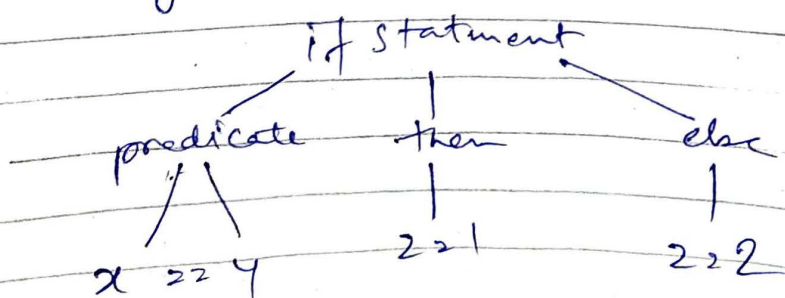 if statment
predicate then else
x == y
z = 1
z = 2